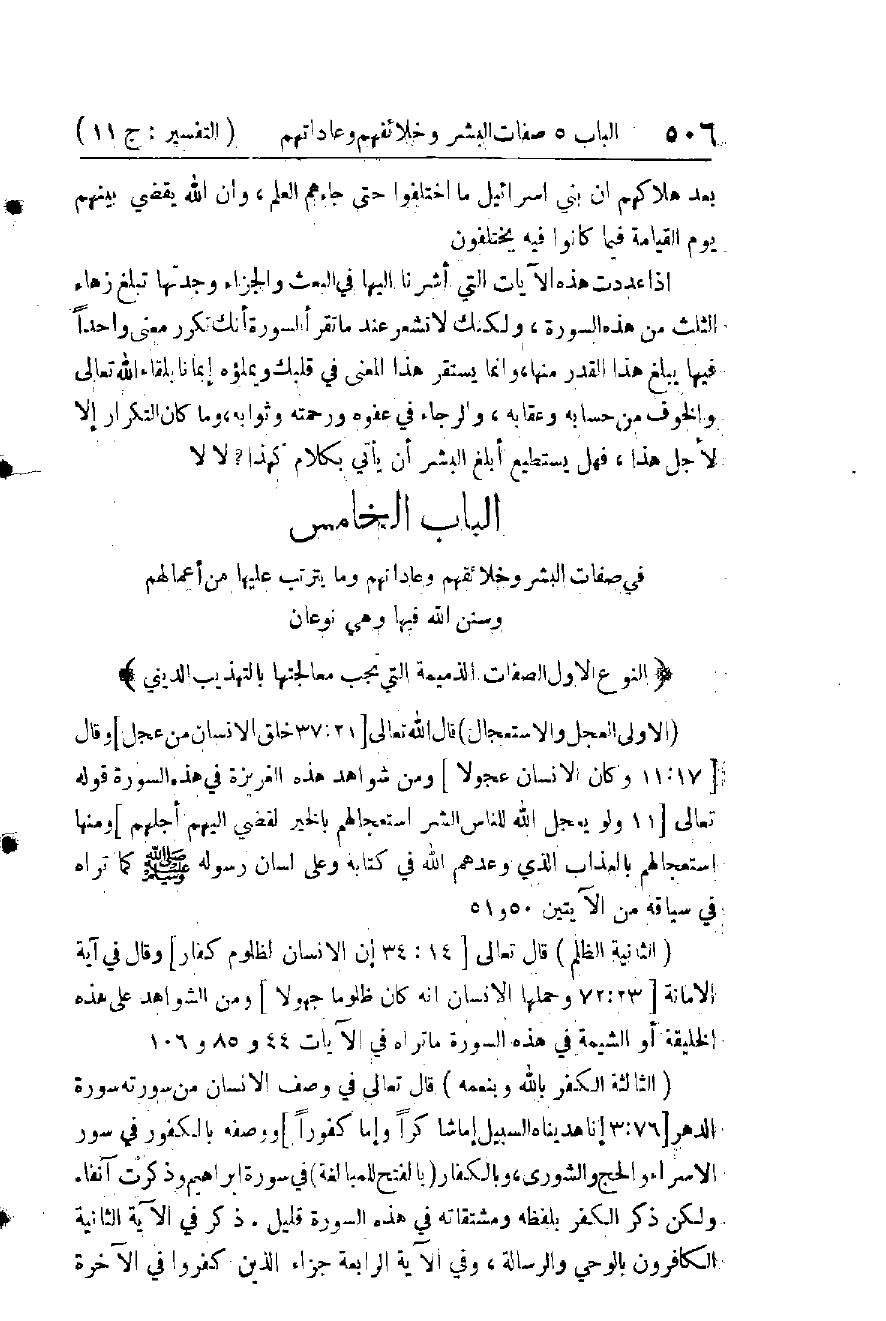 ٥٠٦ الباب ٥ صفات البشر وخلائقهم وعاداتهم ( التفسير : ج ١١ )
بعد هلاكهم ان بني اسرائيل ما اختلفوا حتى جاءهم العلم ، وان الله يقضي بينهم
يوم القيامة فيما كانوا فيه يختلفون
اذا عددت هذه الآيات التي أشرنا اليها في البعث والجزاء وجدتها تبلغ زهاء
الثلث من هذه السورة ، ولكنك لا تشعر عند ما تقرأ السورة أنك تكرر معنى واحداً
فيها يبلغ هذا القدر منها، وانما يستقر هذا المعنى في قلبك ويملؤه إيمانا بلقاء الله تعالى
والخوف من حسابه وعقابه ، والرجاء في عفوه ورحمته وثوابه، وما كان التكرار إلا
لأجل هذا ، فهل يستطيع أبلغ البشر أن يأتي بكلام كهذا؟ لا لا
الباب الخامس
في صفات البشر وخلائقهم وعاداتهم وما يترتب عليها من أعمالهم
وسنن الله فيها وهي نوعان
﴿ النوع الاول الصفات الذميمة التي تجب معالجتها بالتهذيب الديني ﴾
(الاولى العجل والاستعجال) قال الله تعالى [ ٢١:٣٧ خلق الانسان من عجل] وقال
[ ١٧:١١ وكان الانسان عجولا ] ومن شواهد هذه الغريزة في هذه السورة قوله
تعالى [ ١١ ولو يعجل الله للناس الشر استعجالهم بالخير لقضي اليهم أجلهم ] ومنها
استعجالهم بالعذاب الذي وعدهم الله في كتابه وعلى لسان رسوله ﷺ كما تراه
في سياقه من الآيتين ٥٠ و٥١
( الثانية الظلم ) قال تعالى [ ١٤ : ٣٤ إن الانسان لظلوم كفار] وقال في آية
الامانة [ ٢٣:٧٢ وحملها الانسان انه كان ظلوما جهولا ] ومن الشواهد على هذه
الخليقة أو الشيمة في هذه السورة ماتراه في الآيات ٤٤ و ٨٥ و ١٠٦
( الثالثة الكفر بالله وبنعمه ) قال تعالى في وصف الانسان من سورته سورة
الدهر [٣:٧٦ إنا هديناه السبيل إما شاكراً وإما كفوراً ] ووصفه بالكفور في سور
الاسراء والحج والشورى، وبالكفار (بالفتح للمبالغة) في سورة ابراهيم وذكرت آنفاً.
ولكن ذكر الكفر بلفظه ومشتقاته في هذه السورة قليل . ذكر في الآية الثانية
الكافرون بالوحي والرسالة ، وفي الآية الرابعة جزاء الذين كفروا في الآخرة